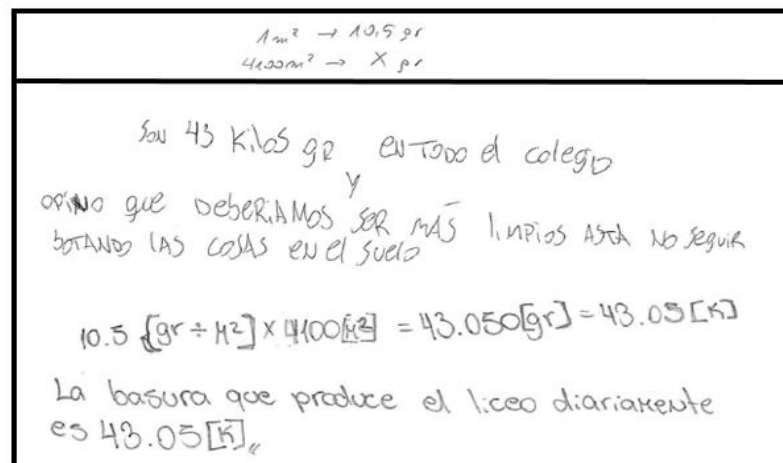 1m² → 10,5 gr
4100m² → X gr
Son 43 Kilos gr en todo el colegio
y
opino que deberiamos ser más limpios asta no seguir
botando las cosas en el suelo
10.5 [gr ÷ M²] × 4100[M²] = 43.050[gr] = 43.05 [K]
La basura que produce el liceo diariamente
es 43.05[K]„